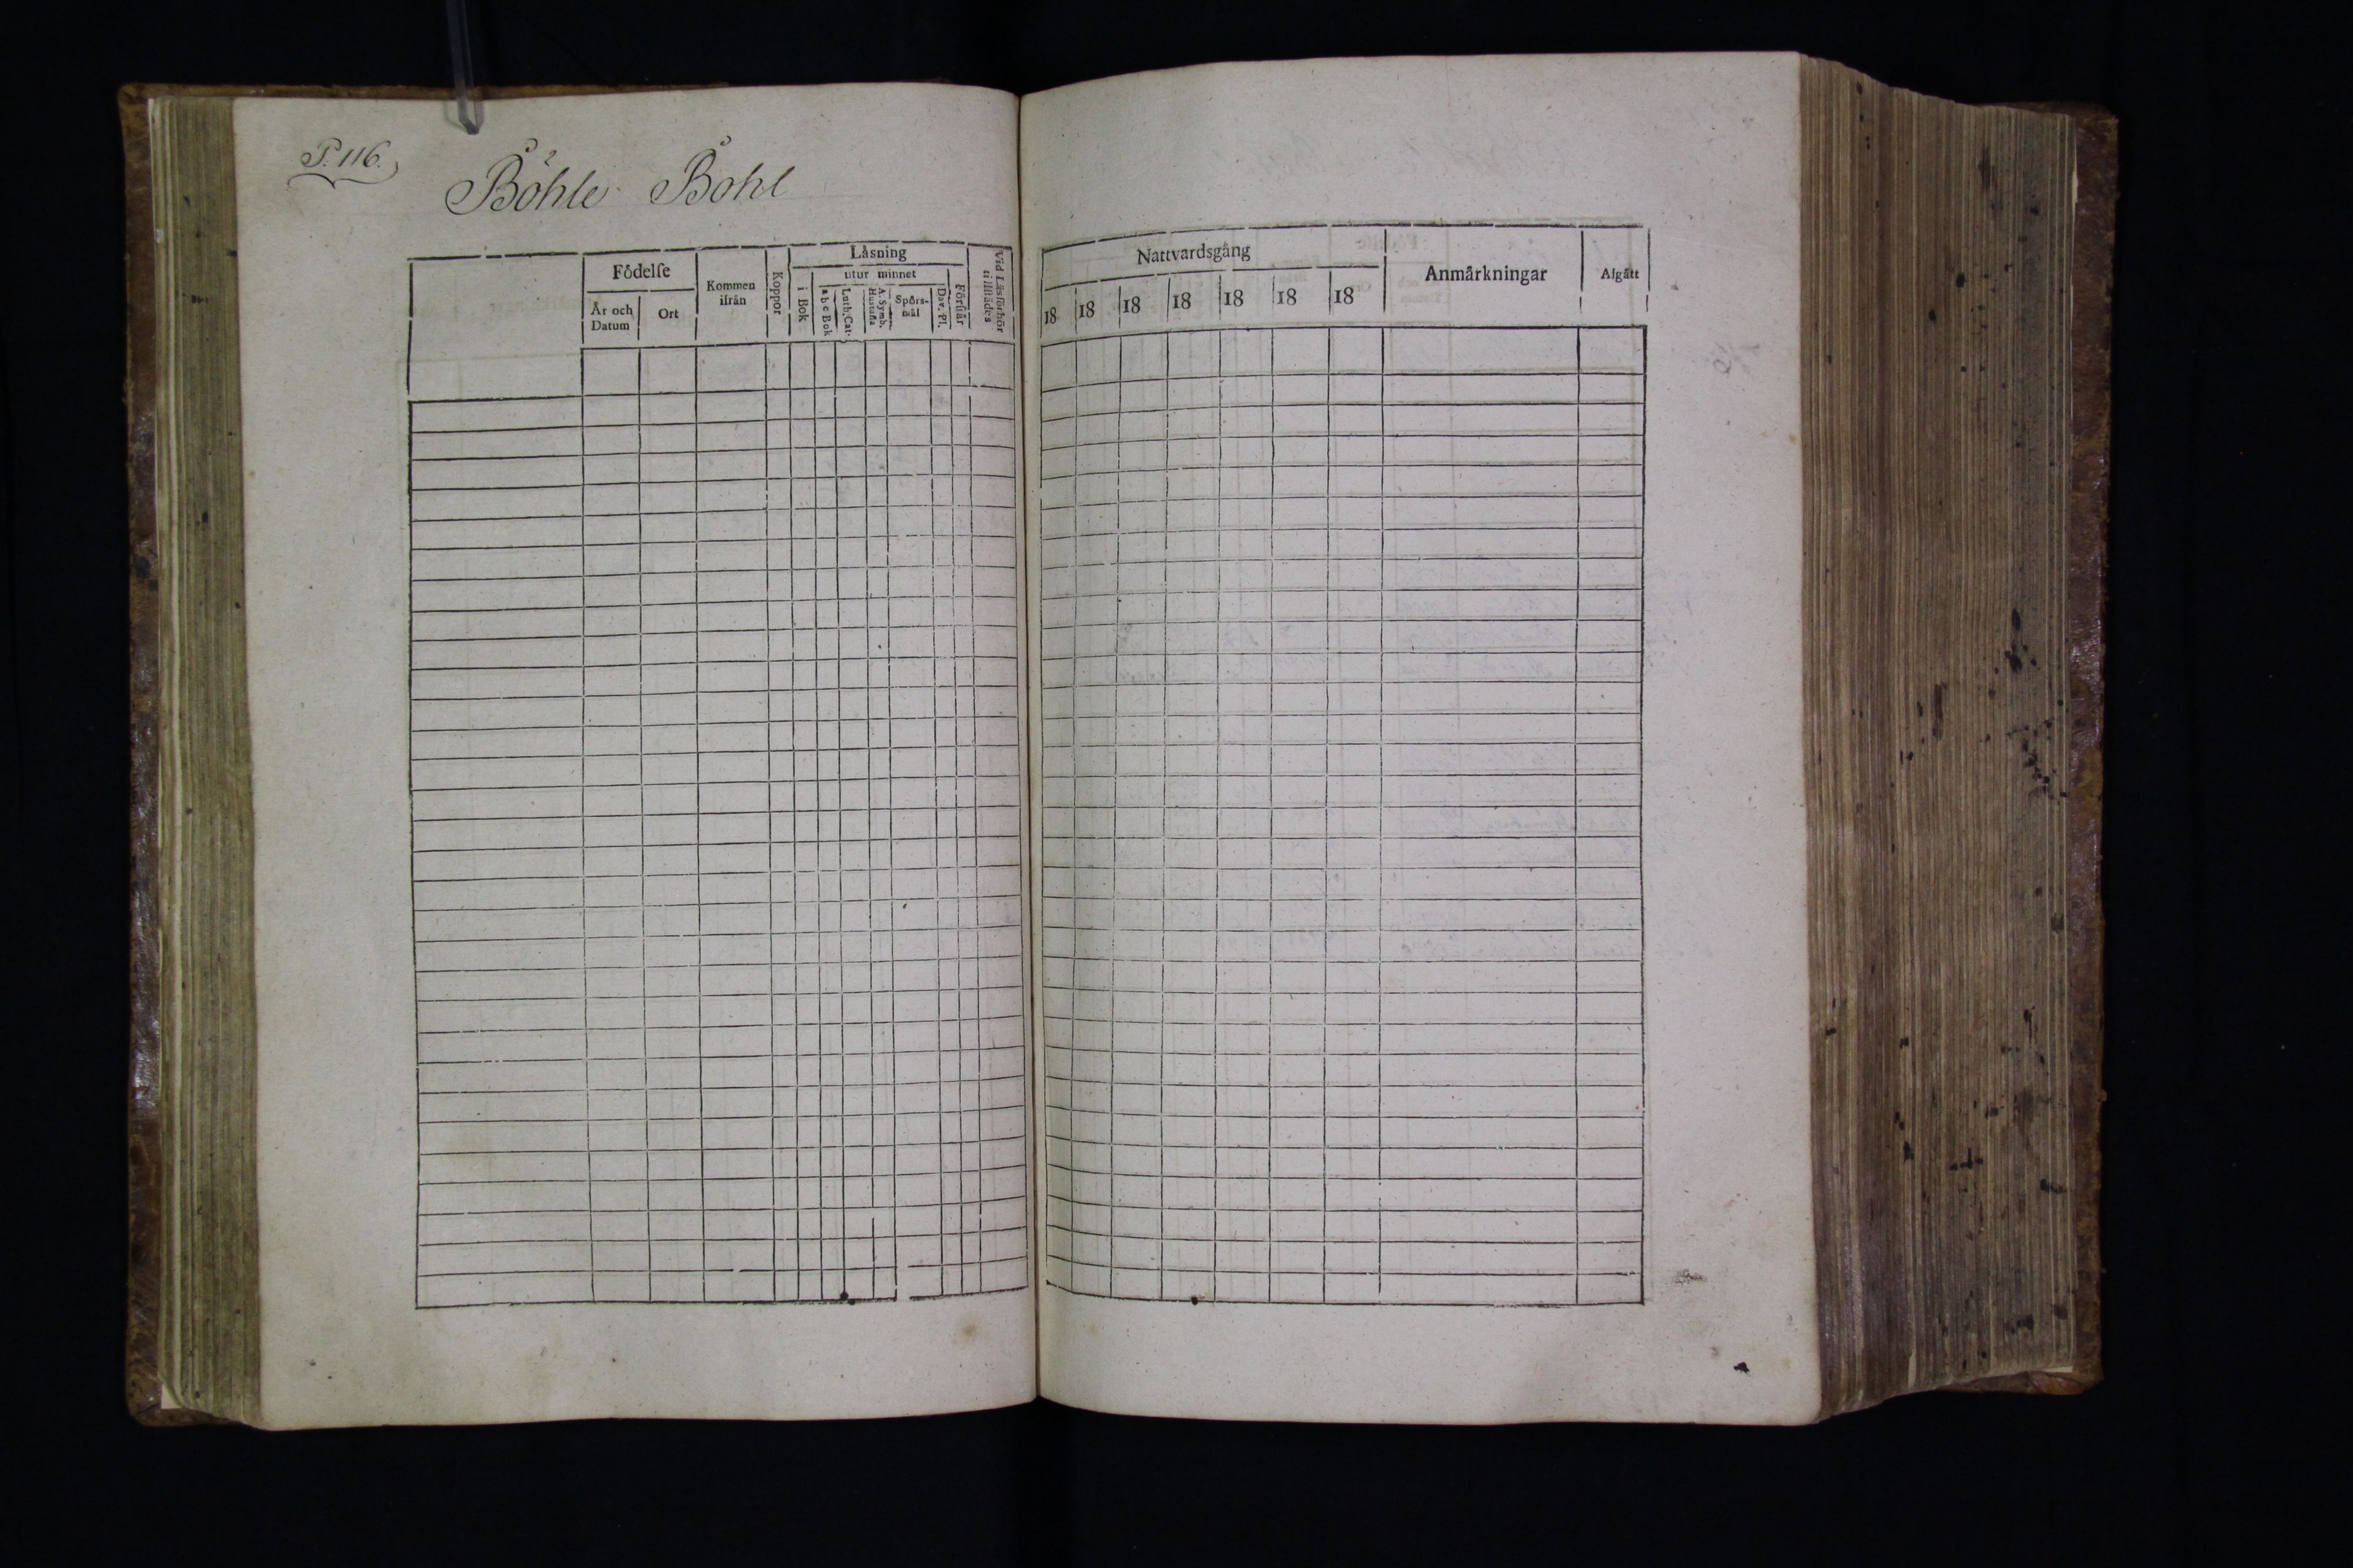 P. 116.
Böhle Bohl
Födelſe
År och Datum
Ort
Kommen ifrån
Koppor
Läsning
utur minnet
i Bok
a b c Bok
Luth. Cat.
A. Symb. Hustafla
Spörsmål
Dav. Pſ.
Förſtår
Vid Läsförhör tillſtädes
Nattvardsgång
18 18 18 18 18 18 18
Anmärkningar
Afgått